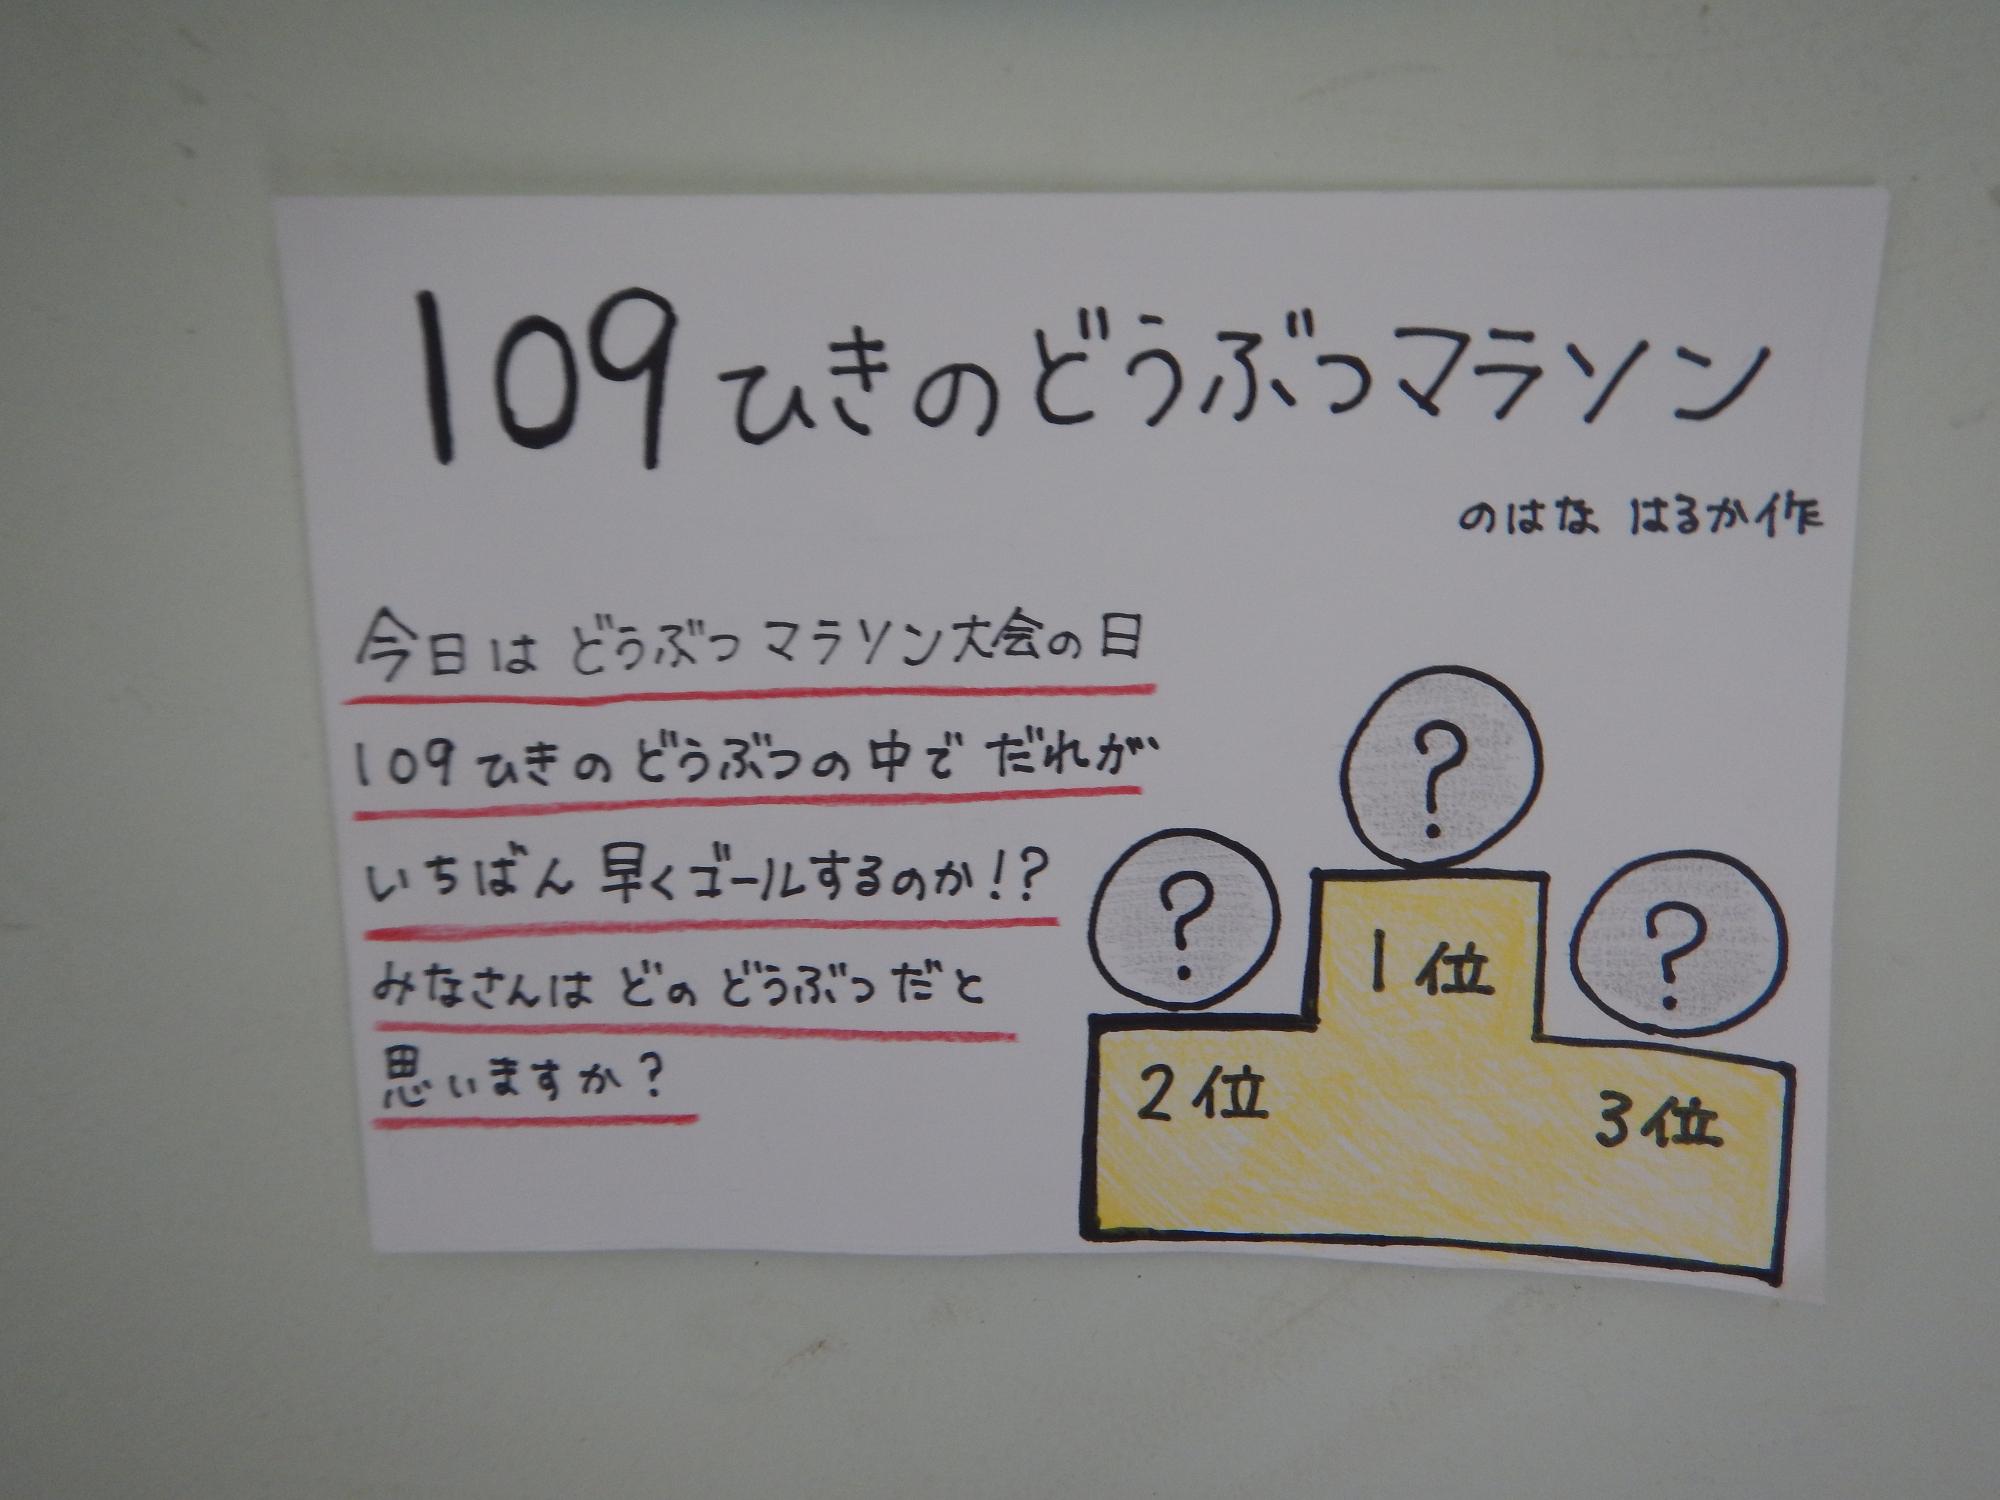 109ひきのどうぶつマラソン
のはな はるか作
今日は どうぶつマラソン大会の日
109ひきの どうぶつの中で だれが
いちばん 早くゴールするのか!?
みなさんは どの どうぶつ だと
思いますか?
?
?
?
1位
2位
3位